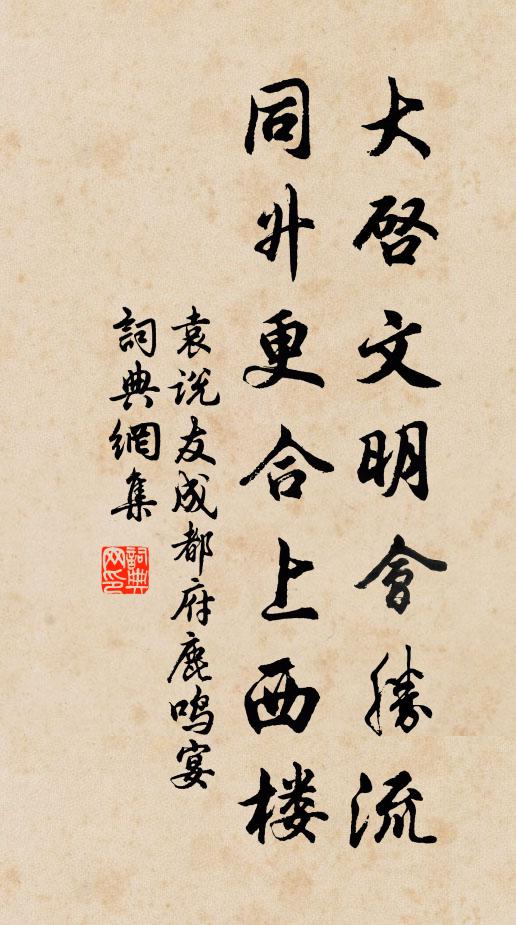 大啓文明會勝流
同升更合上西楼
袁说友成都府鹿鸣宴
詞典網集
詞典网印